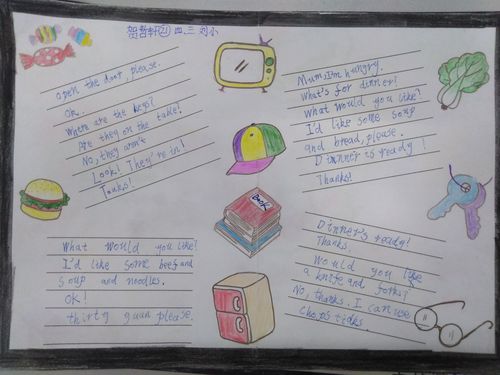 贺哲轩㉑ 四.三 刘小
Open the door, please.
Ok.
Where are the keys?
Are they on the table?
No, they aren't
Look! They're in!
Mum, I'm hungry.
What's for dinner?
What would you like?
I'd like some soup
and bread, please.
Dinner is ready!
Thanks!
Book
What would you like!
I'd like some beef and
soup and noodles.
OK!
thirty yuan please.
Dinner's ready!
Thanks.
Would you like
a knife and forks?
No, thanks. I can use
chopsticks.